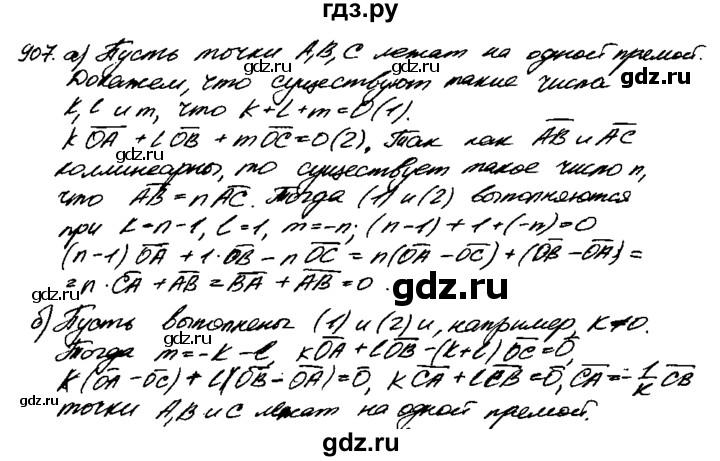 гдз.ру
907. а) Пусть точки A, B, C лежат на одной прямой.
gdz.ru gdz.ru
Докажем, что существуют такие числа
k, l и m, что k + l + m = 0 (1).
gdz.ru
k OA + l OB + m OC = 0 (2). Так как AB и AC
gdz.ru
коллинеарны, то существует такое число n,
что AB = n AC. Тогда (1) и (2) выполняются
gdz.ru gdz.ru
при k = n-1, l = 1, m = -n; (n-1) + 1 + (-n) = 0
(n-1) OA + 1·OB - n OC = n(OA - OC) + (OB - OA) =
= n · CA + AB = BA + AB = 0.
gdz.ru gdz.ru
б) Пусть выполнены (1) и (2) и, например, k ≠ 0.
gdz.ru
Тогда m = -k - l, kOA + lOB - (k+l) OC = 0,
gdz.ru
k(OA - OC) + l(OB - OA) = 0, k CA + l CB = 0, CA = -1/k CB
точки A, B и C лежат на одной прямой.
gdz.ru gdz.ru
gdz.ru